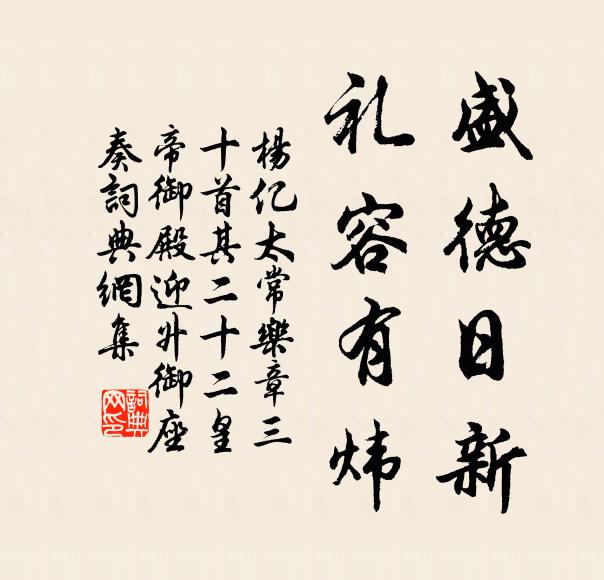 盛德日新
礼容有炜
楊亿太常樂章三
十首其二十二皇
帝御殿迎升御座
奏詞典網集
詞典
网印